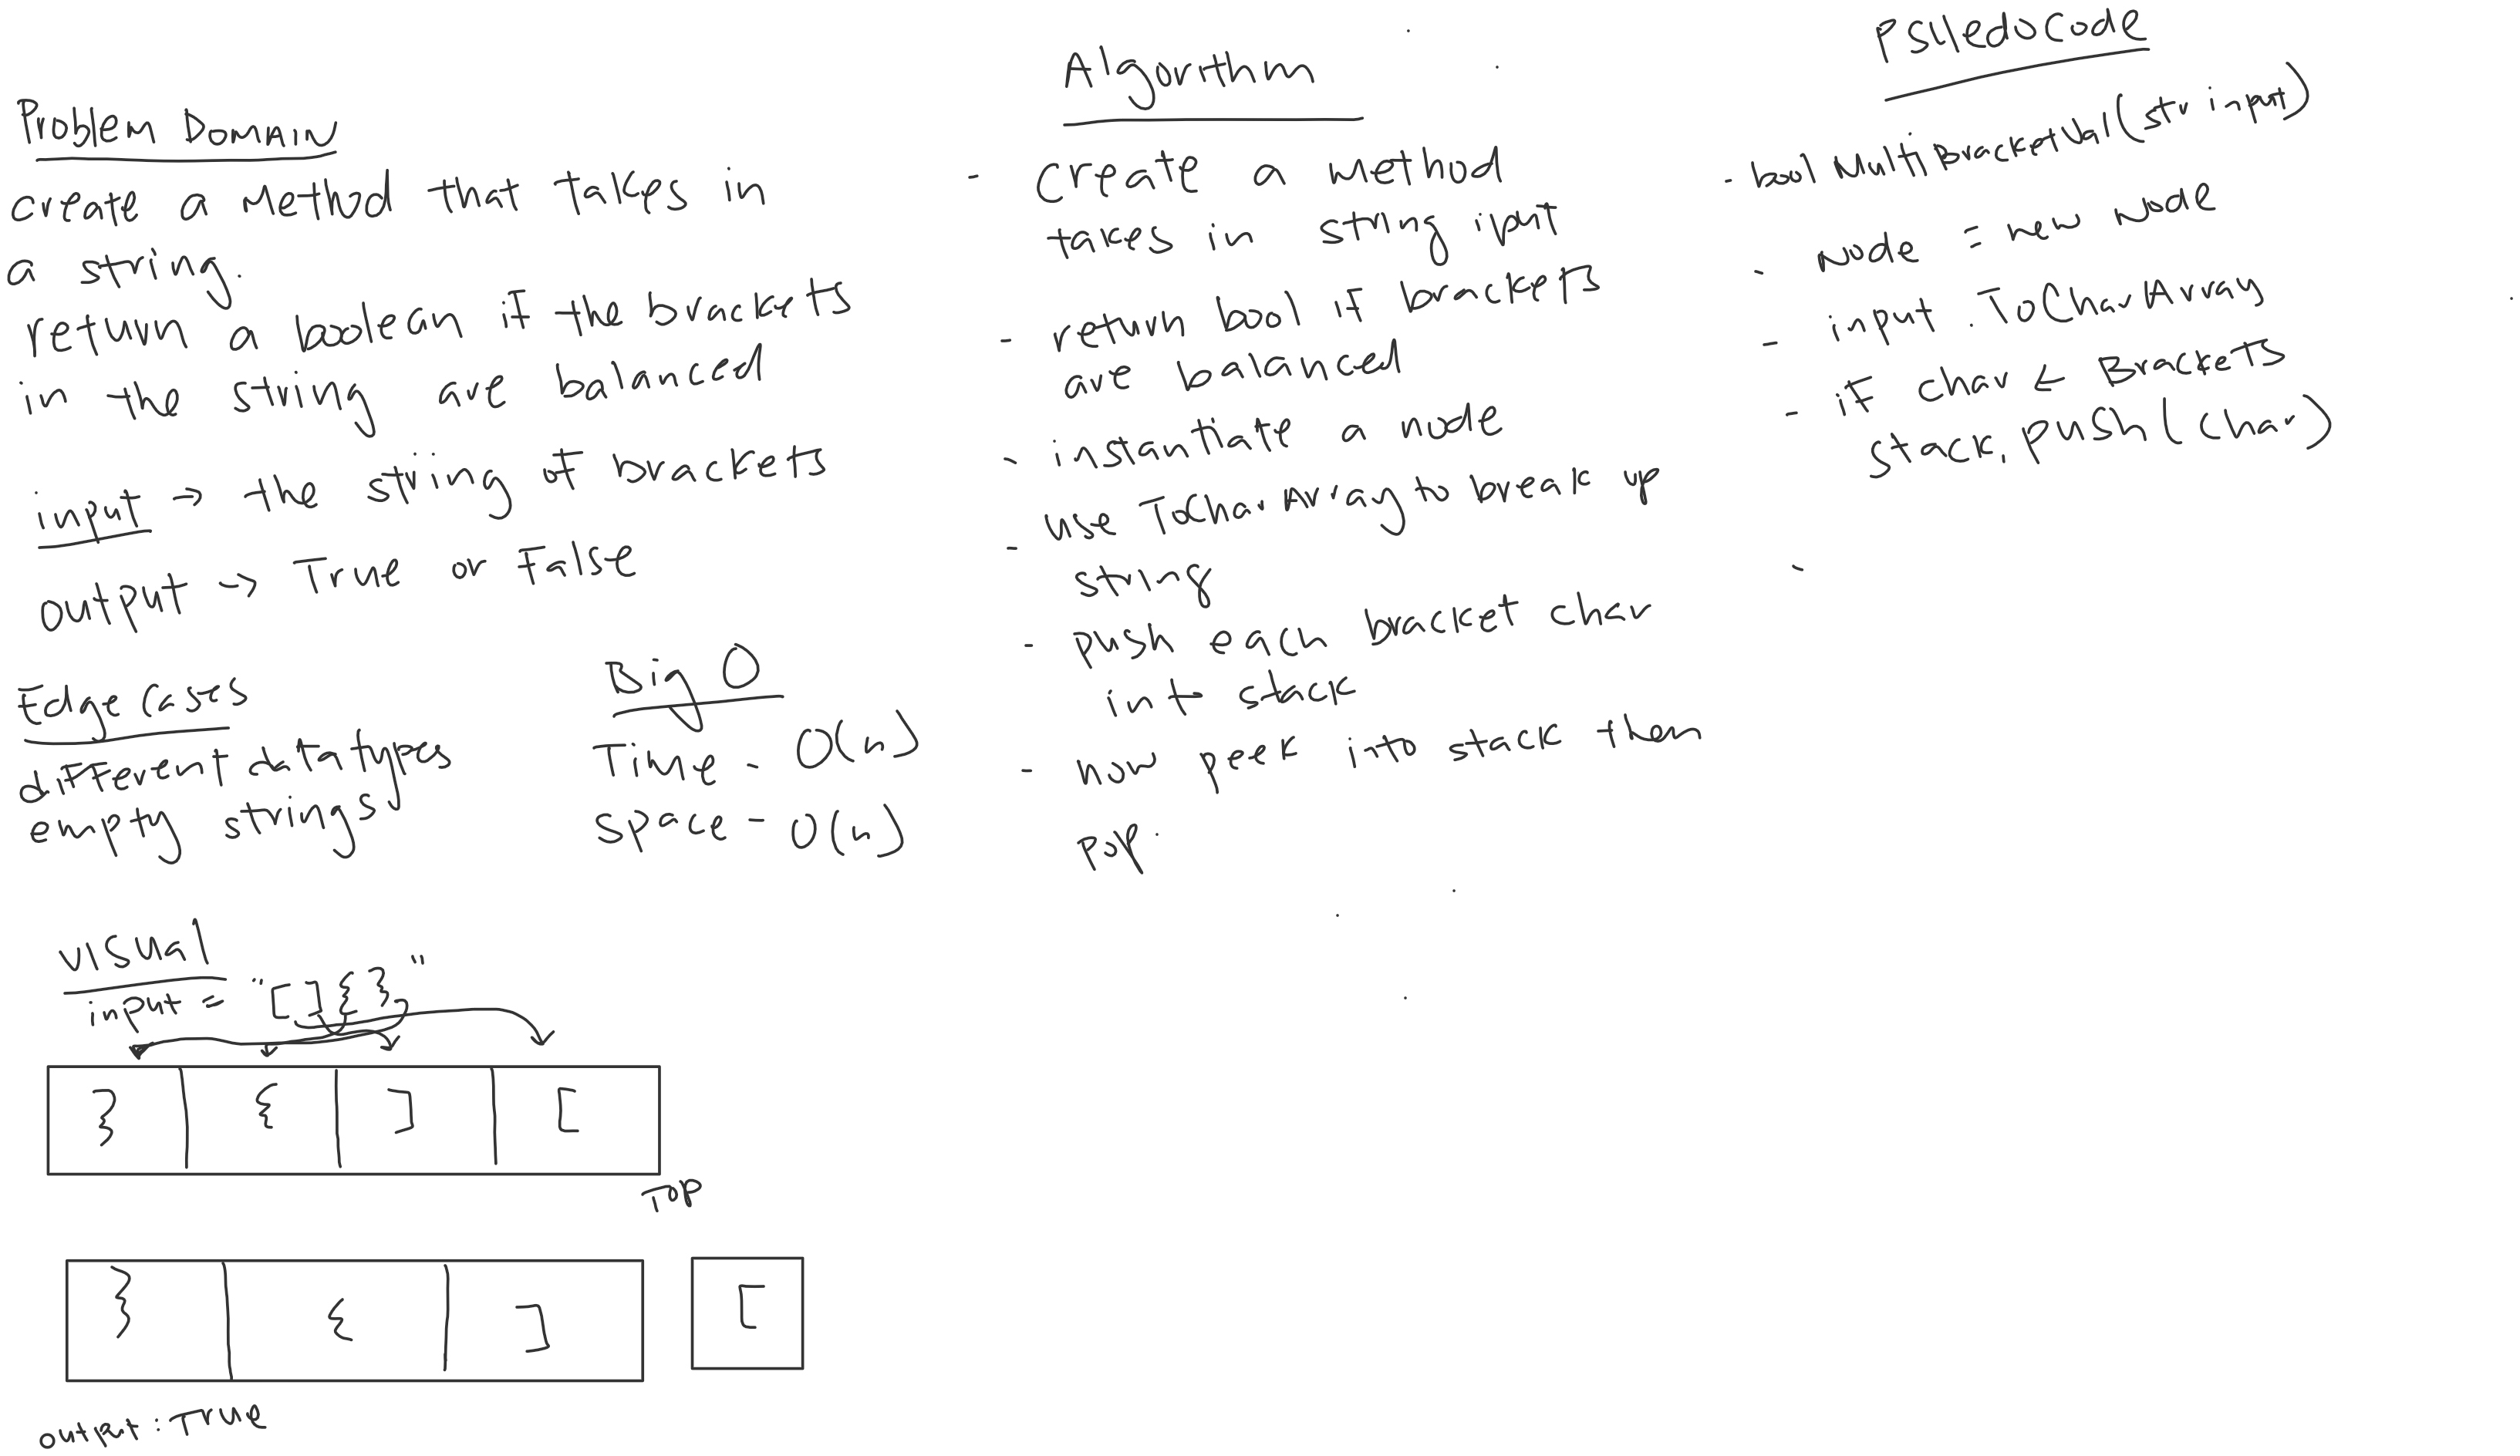 Problem Domain
create a method that takes in
a string.
return a boolean if the brackets
in the string are balanced
input -> the string of brackets
output -> True or False
Edge Cases
different data types
empty strings
Big O
Time - O(n)
space - O(n)
Visual
input = "[]{}"
} { ] [
TOP
} { ] [
output: True
Algorithm
- create a method
takes in string input
- return bool if brackets
are balanced
- instantiate a node
- use ToCharArray to break up
string
- push each bracket char
int stack
- now peek into stack then
pop.
Psuedocode
- bool multiBracketVal(str input)
- Node = new node
- input.ToCharArray
- if char < Brackets
stack.push(char)
-